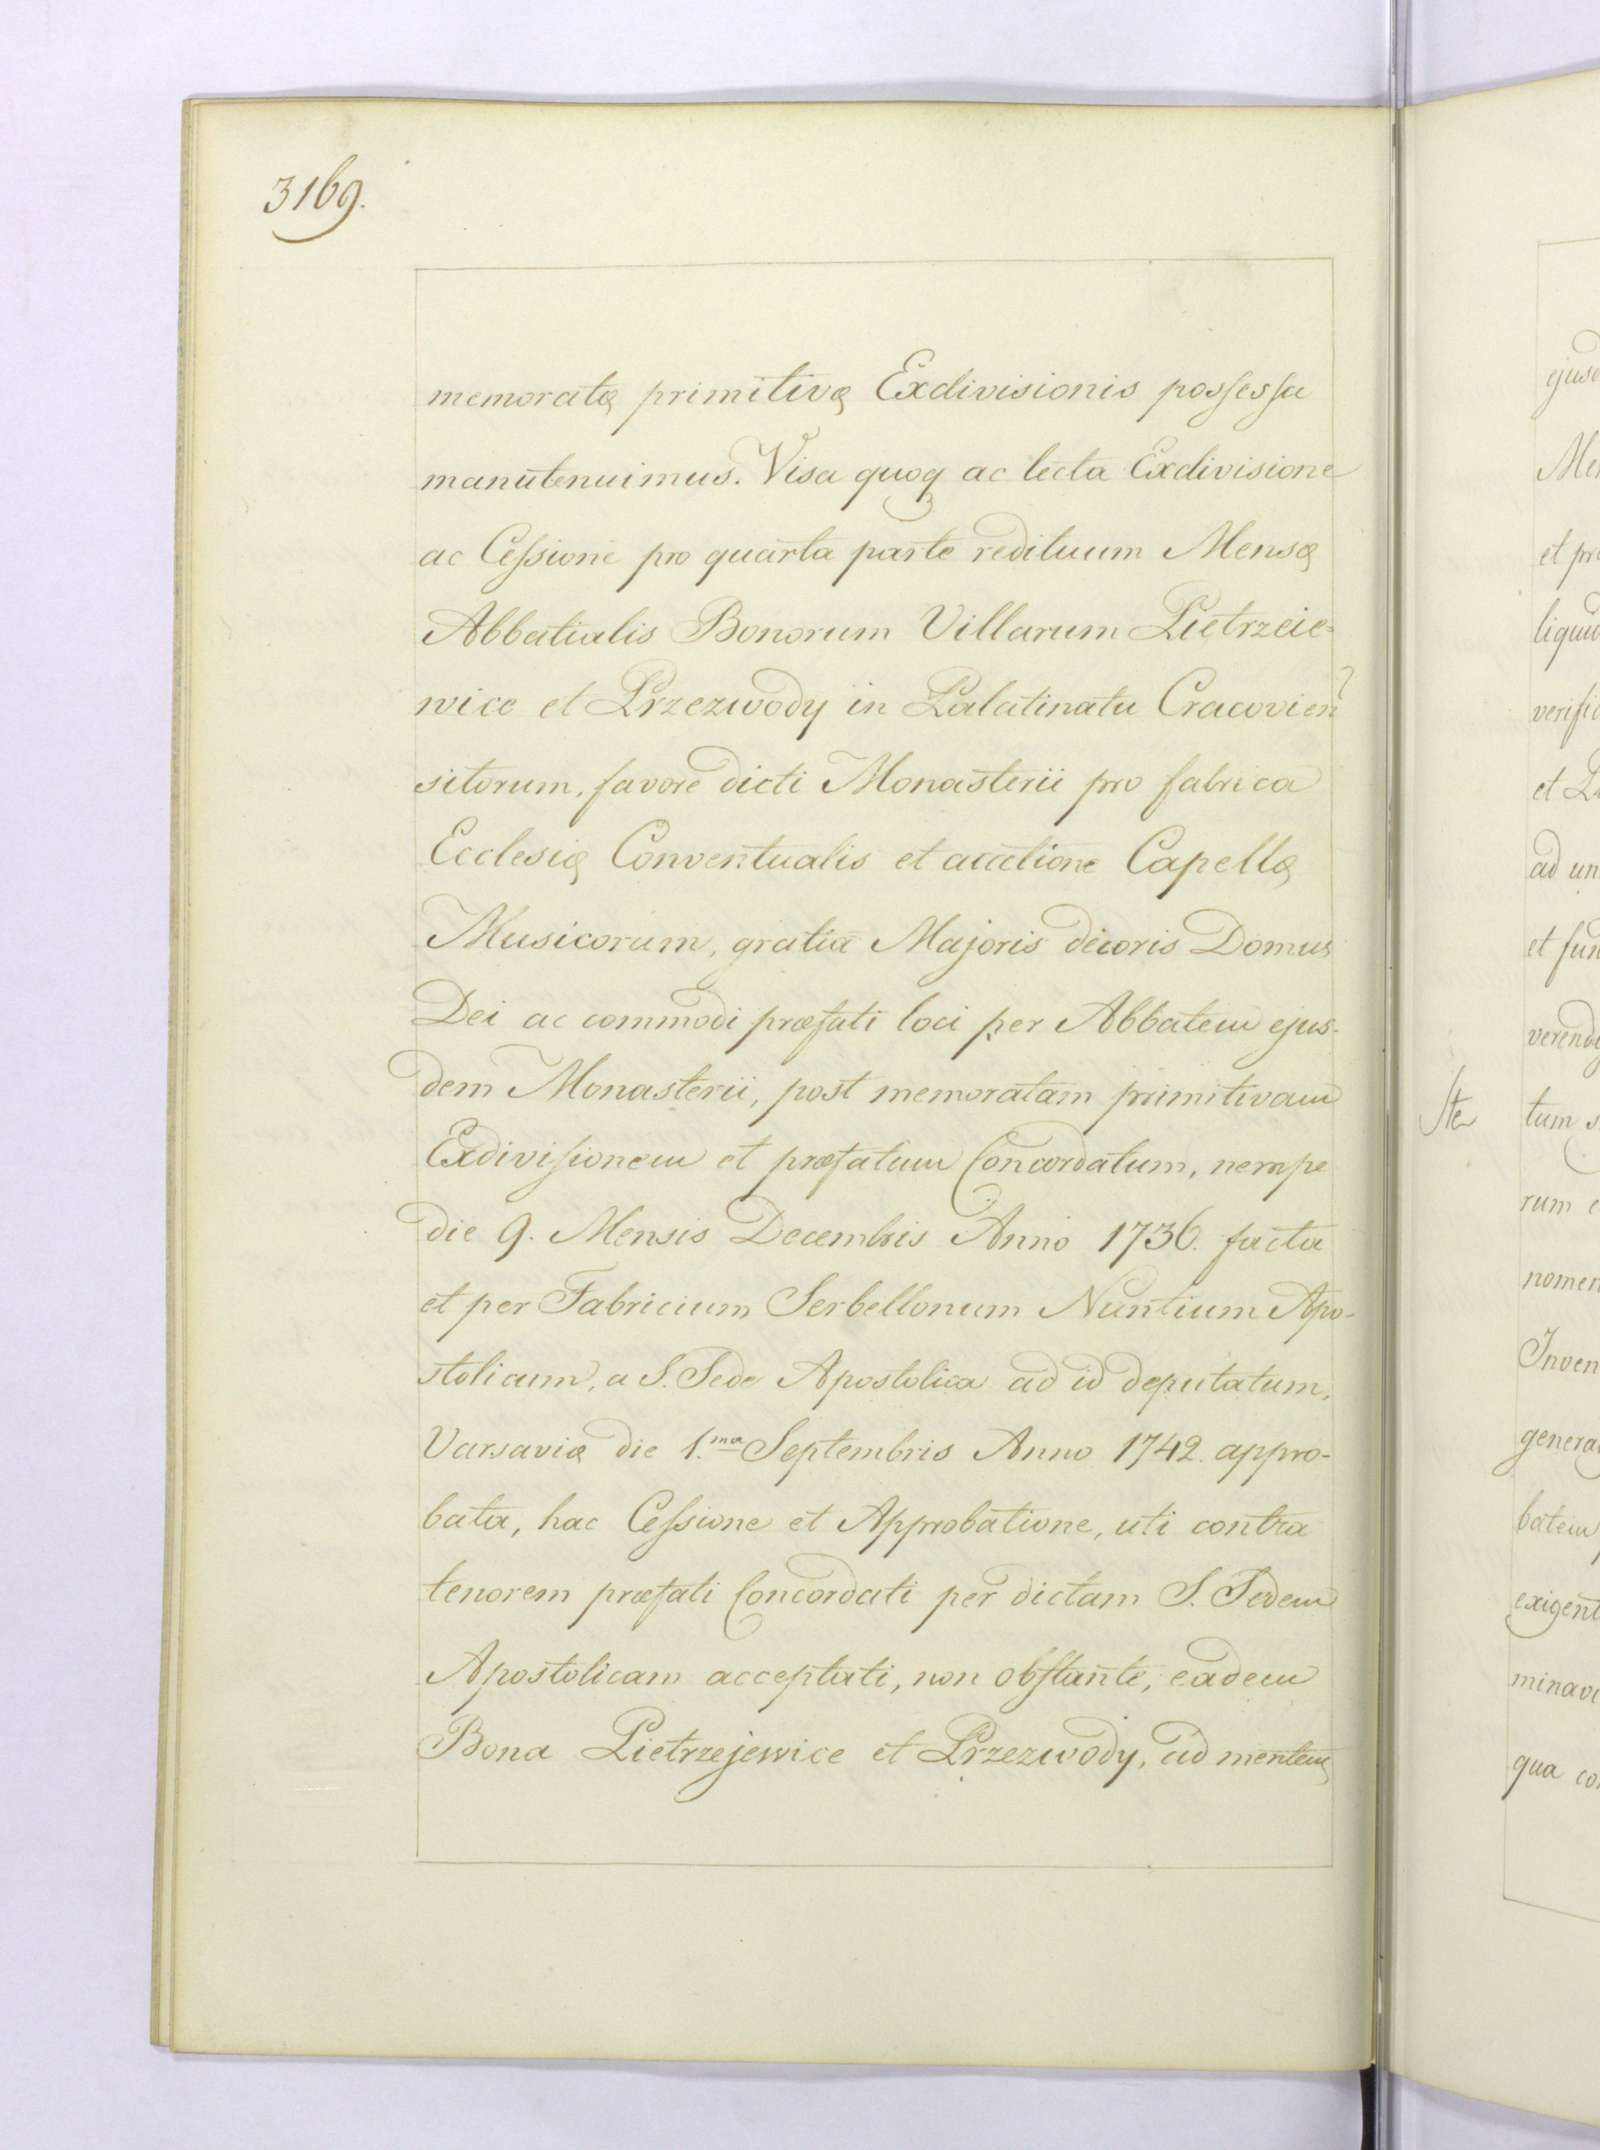 3169.
memoratę primitivę Exdivisionis possessa
manutenuimus. Visa quoq ac lecta Exdivisione
ac Cessione pro quarta parte redituum Mensę
Abbatialis Bonorum Villarum Pietrzeie=
wice et Przezwody in Palatinatu Cracovien
sitorum, favore dicti Monasterii pro fabrica
Ecclesię Conventualis et accetione Capellę
Musicorum, gratia Majoris decoris Domus
Dei ac commodi præfati loci per Abbatem ejus-
dem Monasterii, post memoratam primitivam
Exdivisionem et præfatum Concordatum, nempe
die 9. Mensis Decembris Anno 1736. facta
et per Fabricium Serbellonum Nuntium Apo-
stolicum, a S. Sede Apostolica ad id deputatum,
Varsaviæ die 1.ma Septembris Anno 1742. appro-
bata, hac Cessione et Approbatione, uti contra
tenorem præfati Concordati per dictam S. Sedem
Apostolicam acceptati, non obstante, eadem
Bona Pietrzejewice et Przezwody, ad mentem
ejusd
Me
et pr
liquid
verific
et
ad un
et fun
verend
tum s
rum
nomen
Inven
genera
batem
exigent
minav
qua co